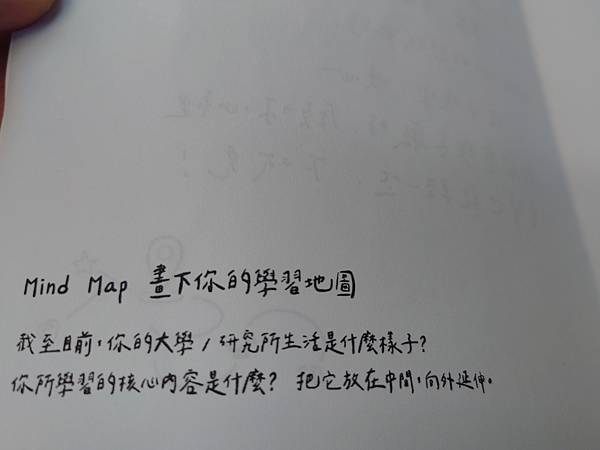 Mind Map 畫下你的學習地圖
截至目前,你的大學/研究所生活是什麼樣子?
你所學習的核心內容是什麼? 把它放在中間,向外延伸。